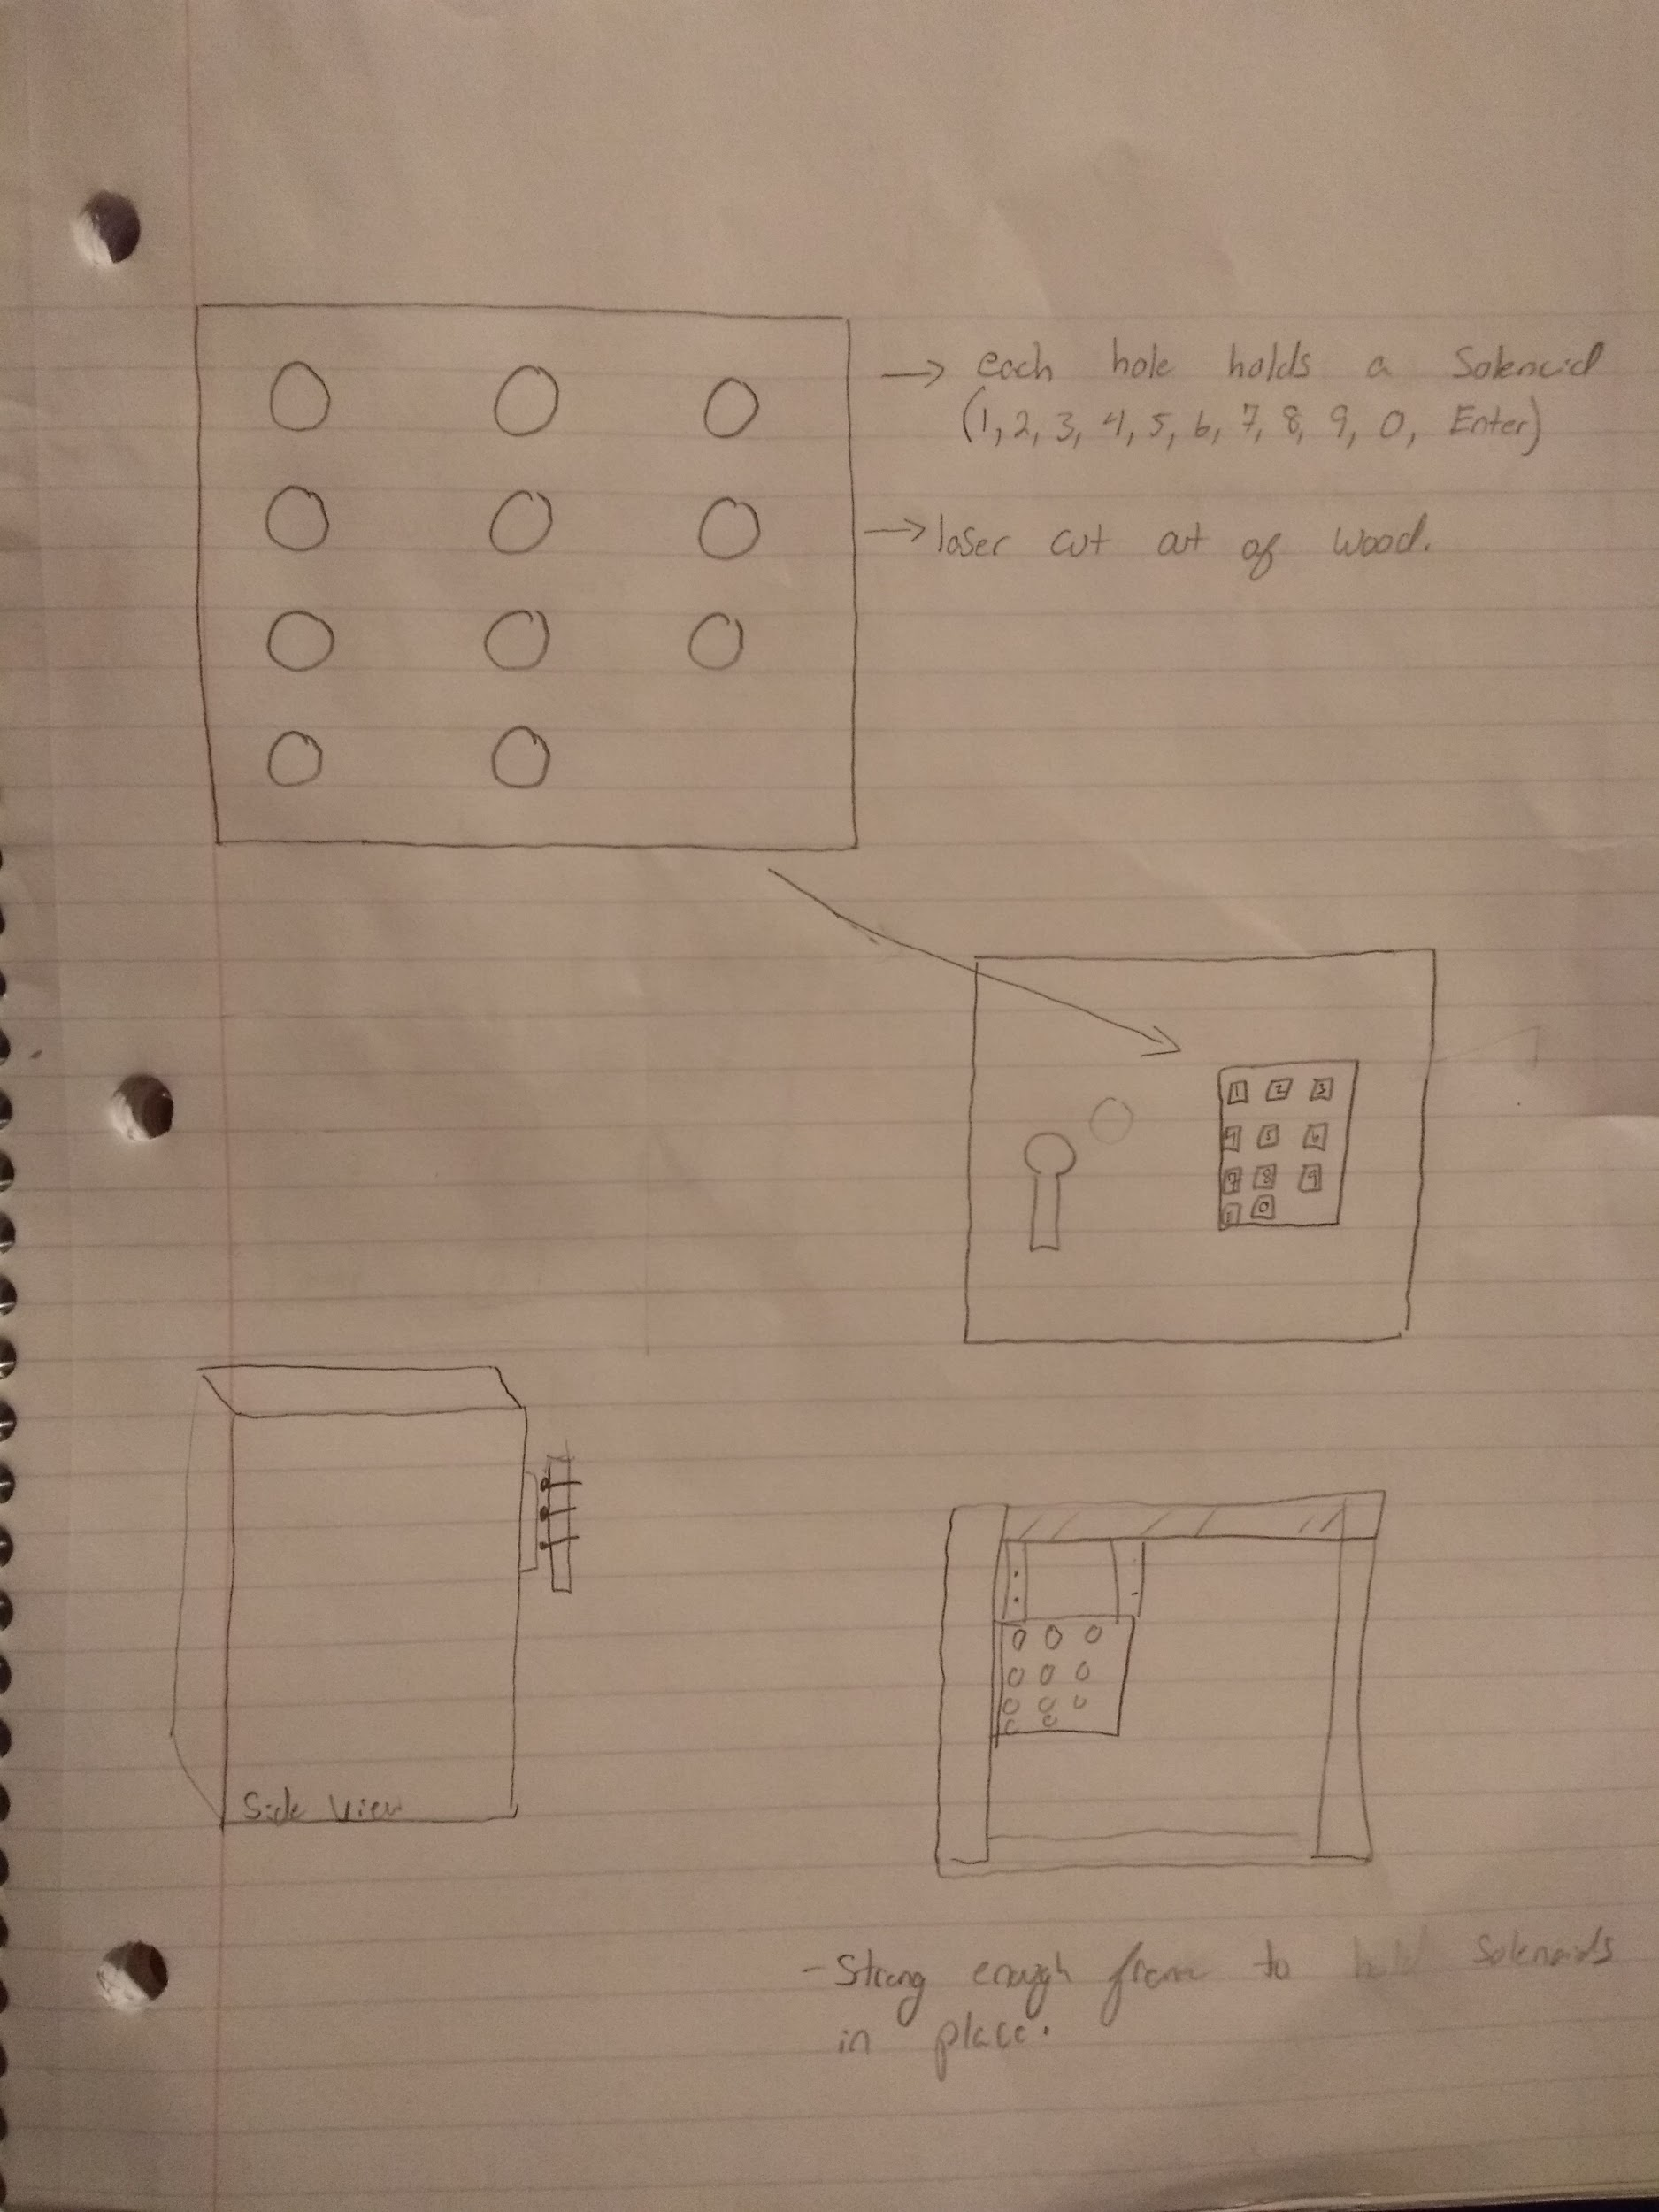 → each hole holds a Solenoid
(1, 2, 3, 4, 5, 6, 7, 8, 9, 0, Enter)
→ laser cut out of wood.
1 2 3
4 5 6
7 8 9
0
Side View
- Strong enough frame to hold Solenoids
in place.